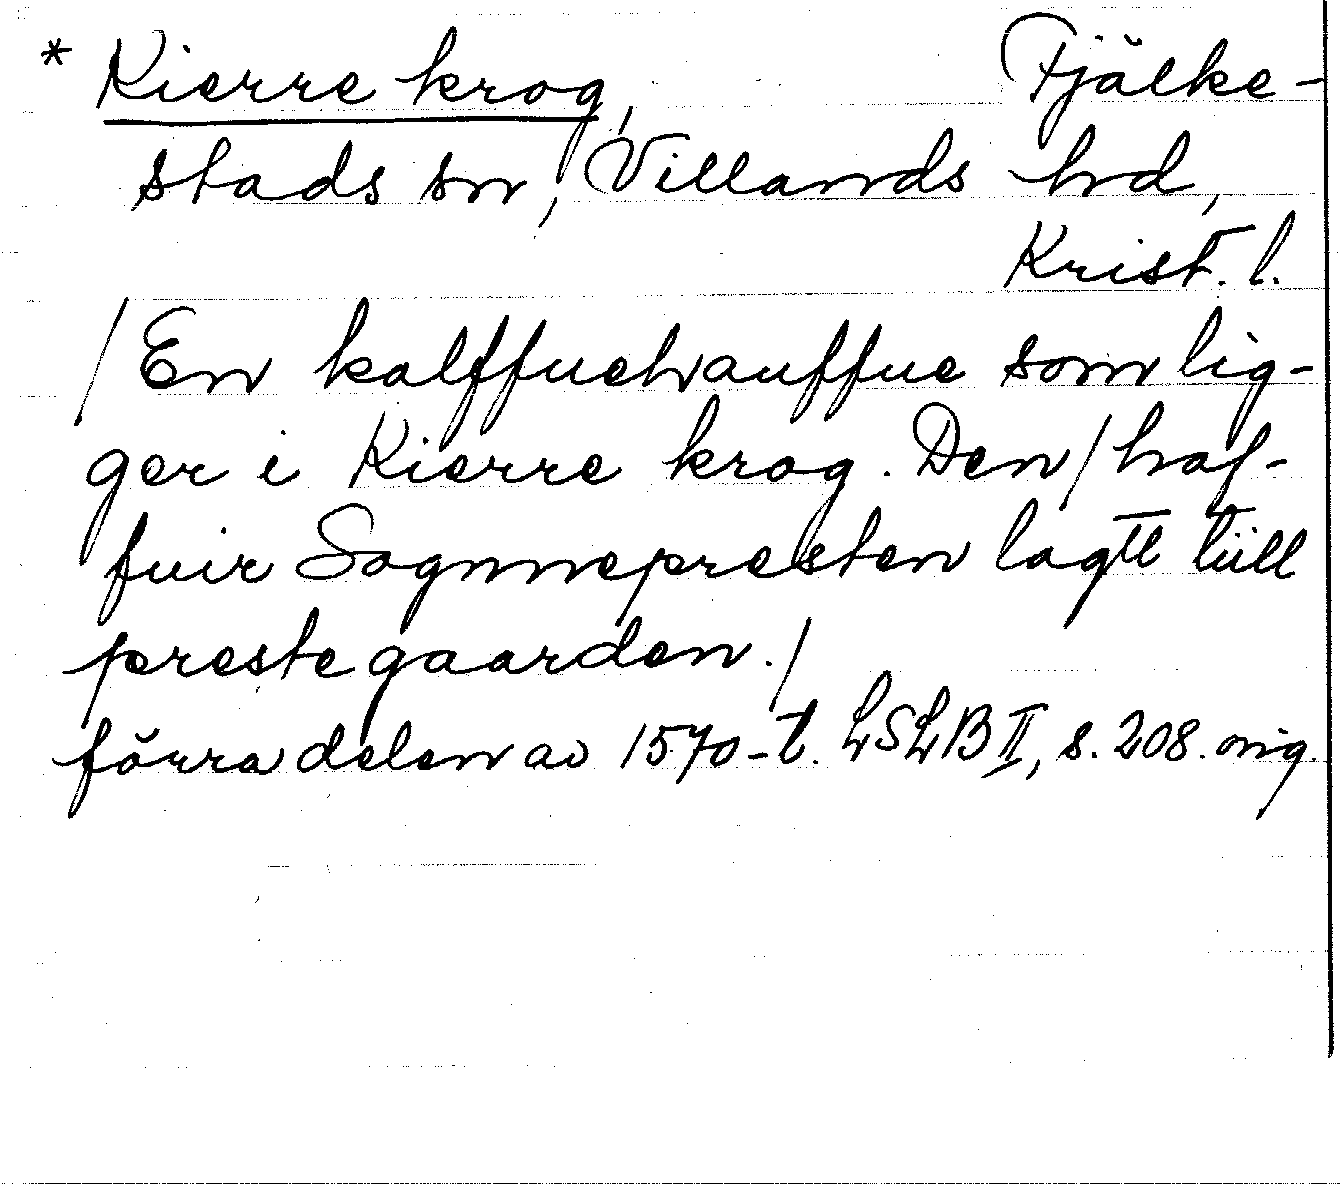 * Kierre krog, Fjälke-
stads sn, Villands hd,
Krist. l.
/En kalffuehauffue som lig-
ger i Kierre krog. Den/haf-
fuir Sognnepresten lagtt tiill
prestegaarden./
förra delen av 1570-t. LSLB II, s. 208. orig.